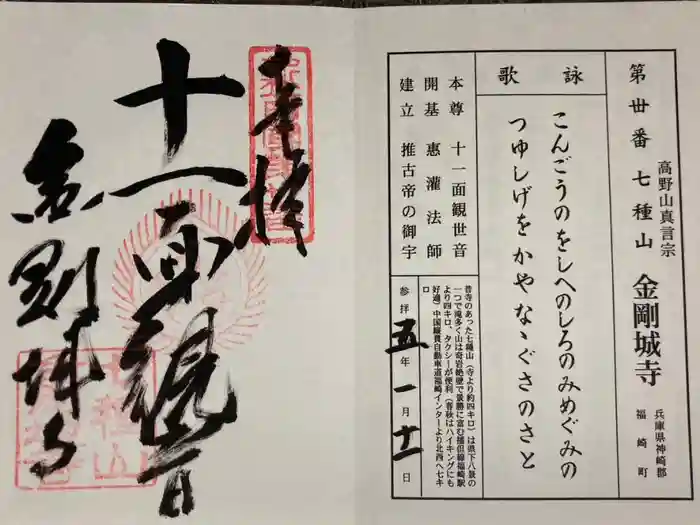 第丗番 七種山 金剛城寺
高野山真言宗
兵庫県神崎郡
福崎町
詠歌
こんごうのをしへのしろのみめぐみの
つゆしげをかやなゝぐさのさと
本尊 十一面観世音
開基 惠灌法師
建立 推古帝の御宇
昔寺のあった七種山(寺より約四キロ)は県下八景の
一つで滝多く山は奇岩絶壁で景勝に富む播但線福崎駅
より四キロ、タクシーが便利(春秋はハイキングにも
好適)中国縦貫自動車道福崎インターより北西へ七キ
ロ
参拝 五年 一月 十一日
奉拝
十一面観音
金剛城寺